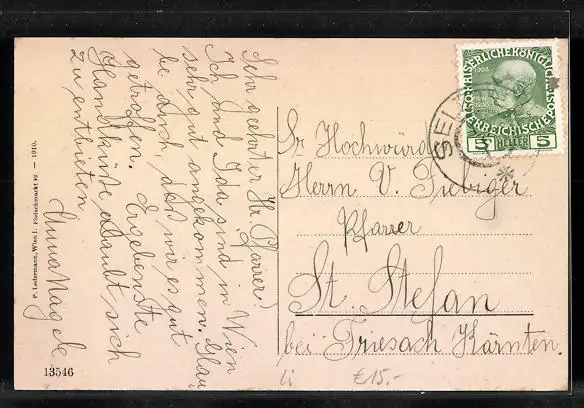 Sehr geehrter Hr. Pfarrer!
Ich und Ida sind in Wien
sehr gut angekommen. Glau
be auch, daß wir es gut
getroffen. Ergebenste
Handküsse erlaubt sich
zu entbieten
Anna Nagele
P. Ledermann, Wien I. Fleischmarkt 12 — 1910.
13546
KAISERLICHE KÖNIGLICHE
ÖSTERREICHISCHE
1908
5 HELLER 5
Sr Hochwürden
Herrn V. Fiebiger
Pfarrer
St. Stefan
bei Friesach Kärnten.
li €15.-